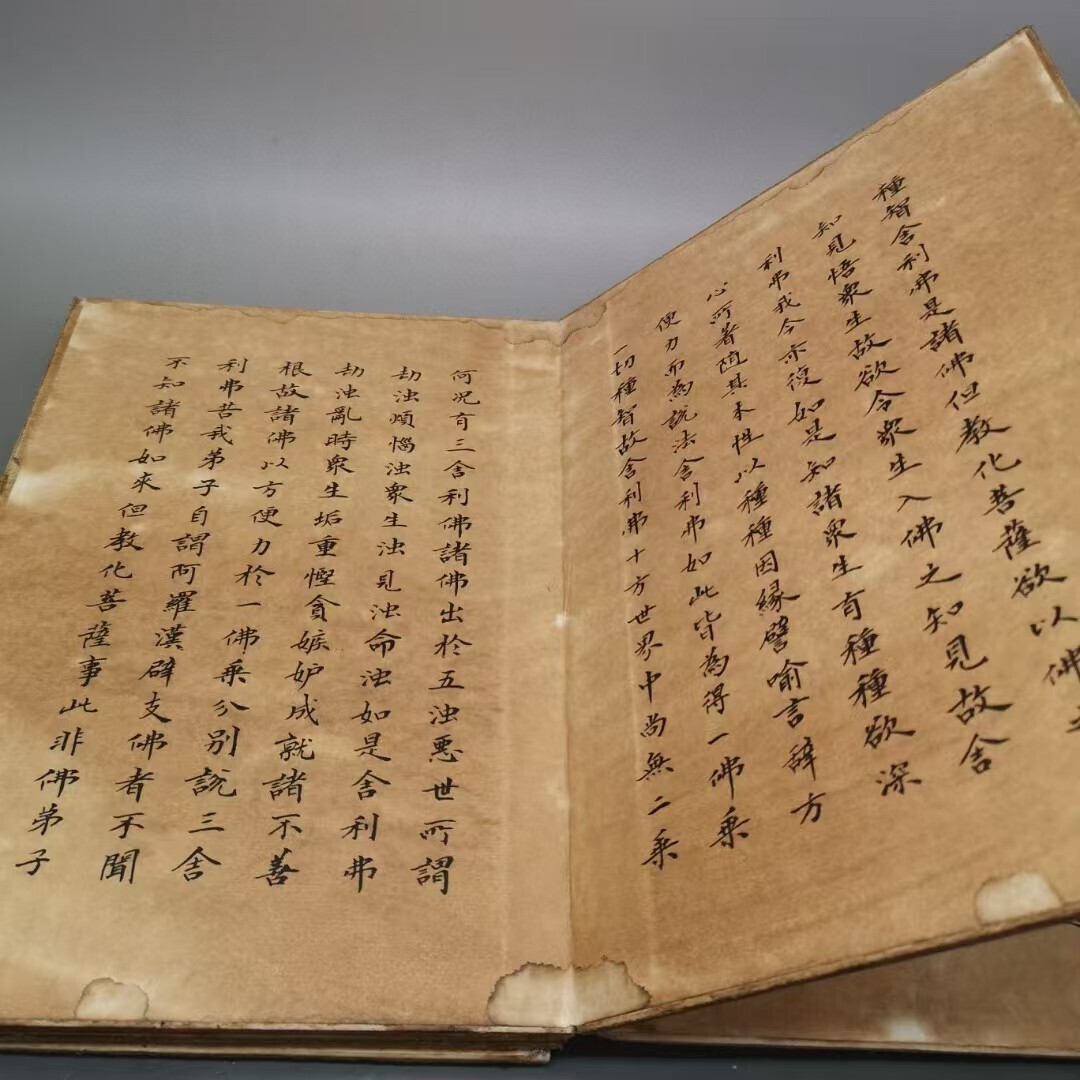 種智舍利佛是諸佛但教化菩薩欲以佛
知見悟眾生故欲令眾生入佛之知見故舍
利弗我今亦復如是知諸眾生有種種欲深
心所著随其本性以種種因緣譬喻言辭方
便力而為說法舍利弗如此皆為得一佛乘
一切種智故舍利弗十方世界中尚無二乘
何況有三舍利佛諸佛出於五浊悪世所謂
劫浊煩惱浊眾生浊見浊命浊如是舍利弗
劫浊亂時眾生垢重慳貪嫉妒成就諸不善
根故諸佛以方便力於一佛乘分別說三舍
利弗苦我弟子自謂阿羅漢辟支佛者不聞
不知諸佛如來但教化菩薩事此非佛弟子